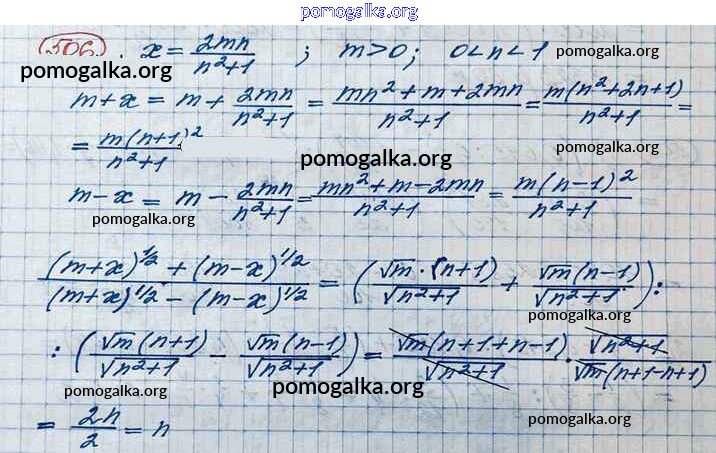 pomogalka.org
506. x = 2mn/(n²+1) ; m>0; 0<n<1
pomogalka.org
pomogalka.org
m+x = m + 2mn/(n²+1) = (mn²+m+2mn)/(n²+1) = m(n²+2n+1)/(n²+1) =
pomogalka.org
= m(n+1)²/(n²+1)
pomogalka.org
m-x = m - 2mn/(n²+1) = (mn²+m-2mn)/(n²+1) = m(n-1)²/(n²+1)
pomogalka.org
pomogalka.org
((m+x)^1/2 + (m-x)^1/2)/((m+x)^1/2 - (m-x)^1/2) = (√m·(n+1)/√(n²+1) + √m(n-1)/√(n²+1)) :
pomogalka.org
pomogalka.org
: (√m(n+1)/√(n²+1) - √m(n-1)/√(n²+1)) = √m(n+1+n-1)/√(n²+1) · √(n²+1)/(√m(n+1-n+1))
pomogalka.org
pomogalka.org
pomogalka.org
= 2n/2 = n
pomogalka.org